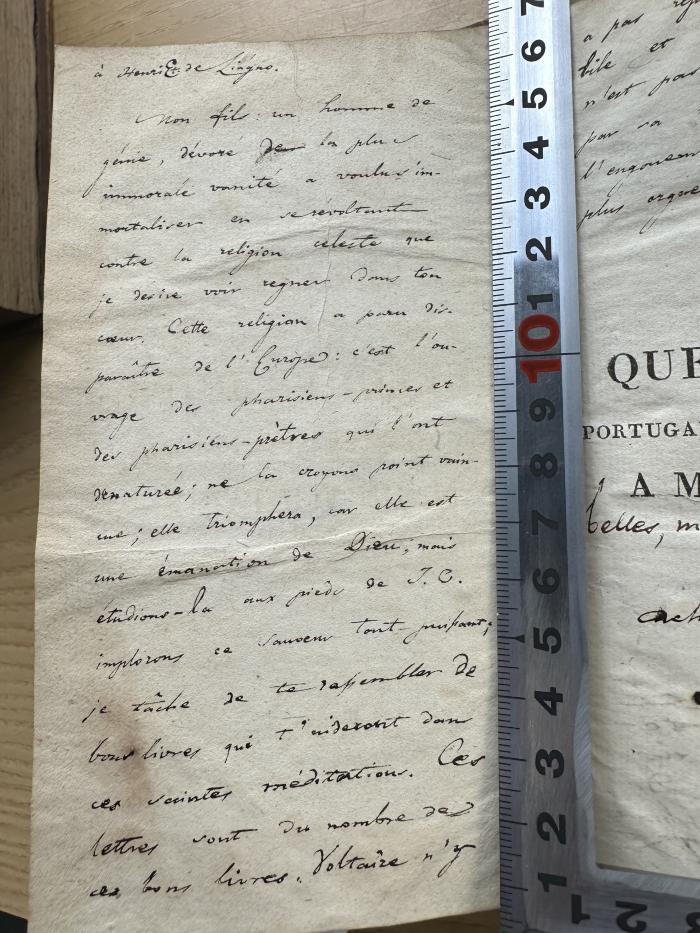 à Henri de Lingno.
Mon fils : un homme de
génie, dévoré la plus
immorale vanité a voulu s'im-
mortaliser en se révoltant
contre la religion céleste que
je desire voir regner dans ton
cœur. Cette religion a paru dis-
paraître de l'Europe : c'est l'ou-
vrage des pharisiens-princes et
des pharisiens-prêtres qui l'ont
dénaturée ; ne la croyons point vain-
cue ; elle triomphera, car elle est
une émanation de Dieu ; mais
étudions-la aux pieds de J. C.
implorons ce sauveur tout-puissant ;
je tâche de te rassembler de
bons livres qui t'aideront dans
ces saintes méditations. Ces
lettres sont du nombre de
ces bons livres. Voltaire n'y
a pas
bile et
n'est pas
par sa
l'engouem
plus orgue
QUE
PORTUGA
A M
belles, m
7
6
5
4
3
2
1
10
9
8
7
6
5
4
3
2
1
1
2